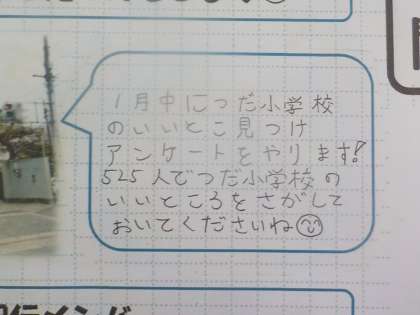 1月中につだ小学校
のいいとこ見つけ
アンケートをやります!
525人でつだ小学校の
いいところをさがして
おいてくださいね